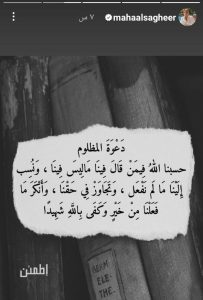 mahaalsagheer
٧ س
دَعْوَةَ المظلوم
حسبنا اللهُ فيمَنْ قالَ فينَا مَاليِس فينَا ، وَنُسِب
إِلَيْنَا مَا لَم نَفْعَل ، وَتَجَاوَزْ فِي حَقْنَا ، وَأَنْكَرَ مَا
فَعَلْنَا مِنْ خَيْرٍ وَكَفَى بِاللَّهِ شَهِيدًا
اطمئن
ADAM
ELE
THE